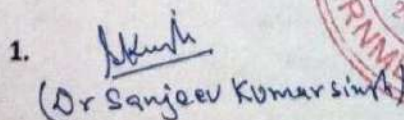 1.
(Dr Sanjeev Kumar Singh)
RNM